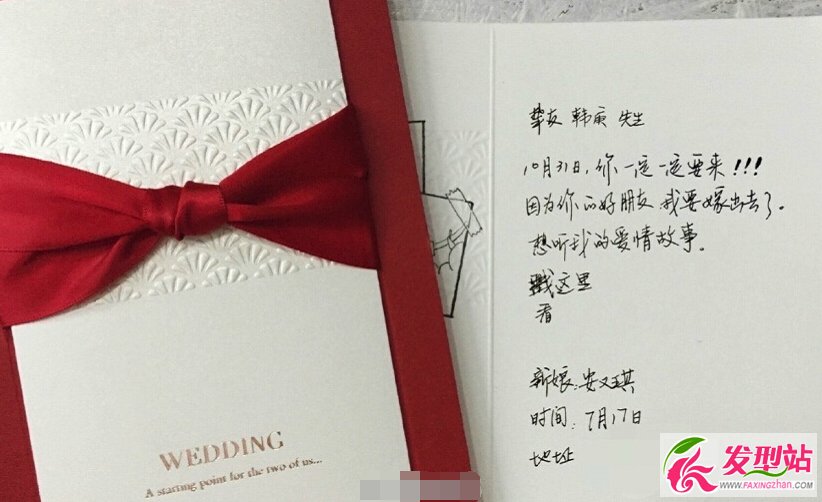 WEDDING
A starting point for the two of us...
挚友 韩庚 先生
10月31日,你一定一定要来!!!
因为你的好朋友 我要嫁出去了。
想听我的爱情故事。
戳这里
看
新娘:安又琪
时间:7月17日
地址
发型站
WWW.FAXINGZHAN.COM